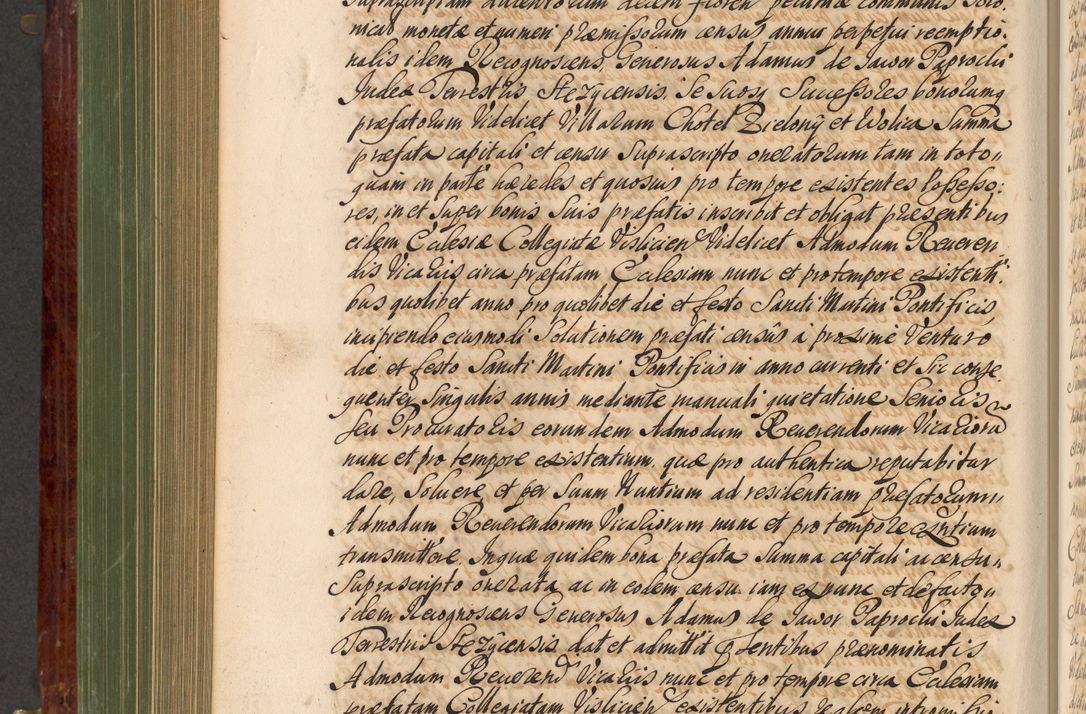 Suprascriptam ducentorum decem floren pecuniæ communis Polo,
nical monetæ et numeri præmissorum census annui perpetui reemptio,
nalis idem Recognoscens, Generosus Adamus de Jawor Paprocki
Judex Terrestris Stezycensis, Se Suosq Successores bonorumq
præfatorum Videlicet Villarum Chotel Zielony et Wolica Summa
præfata capitali et censu Suprascripto oneratorum tam in toto,,
quam in parte hæredes et quosuis pro tempore existentes Possesso:
res, in et Super bonis Suis præfatis inscribit et obligat præsentibus
eidem Ecclesiæ Collegiatæ Vislicien Videlicet Admodum Reueren
dis Vicariis circa præfatam Ecclesiam nunc et pro tempore existenti,
bus quolibet anno pro quolibet die et festo Sancti Martini Pontificis,
incipiendo eiusmodi Solutionem præfati censûs à proximè Venturo
die et festo Sancti Martini Pontificis in anno currenti et Sic conse
quenter Singulis annis mediante manuali quietatione Senioris
Seu Procuratoris eorundem Admodum Reuerendorum Vicariorũ
nunc et pro tempore existentium, quæ pro authentica reputabitur
dare, Soluere, et per Suum Nuntium ad residentiam præfatorum,,
Admodum Reuerendorum Vicariorum nunc et pro tempore exntium
transmittere. In quæ quidem bona præfata Summa capitali ac censu,,
Suprascripto onerata, ac in eodem censu iam ex nunc et defacto
idem Recognoscens Generosus Adamus de Jawor Paprocki Judex
Terrestris Stezÿcensis dat et admittit Psentibus prænominatis
Admodum Reuerend Vicariis nunc et pro tempore circa Ecclesiam
præfatam Collegiatam Vislicien existentibus